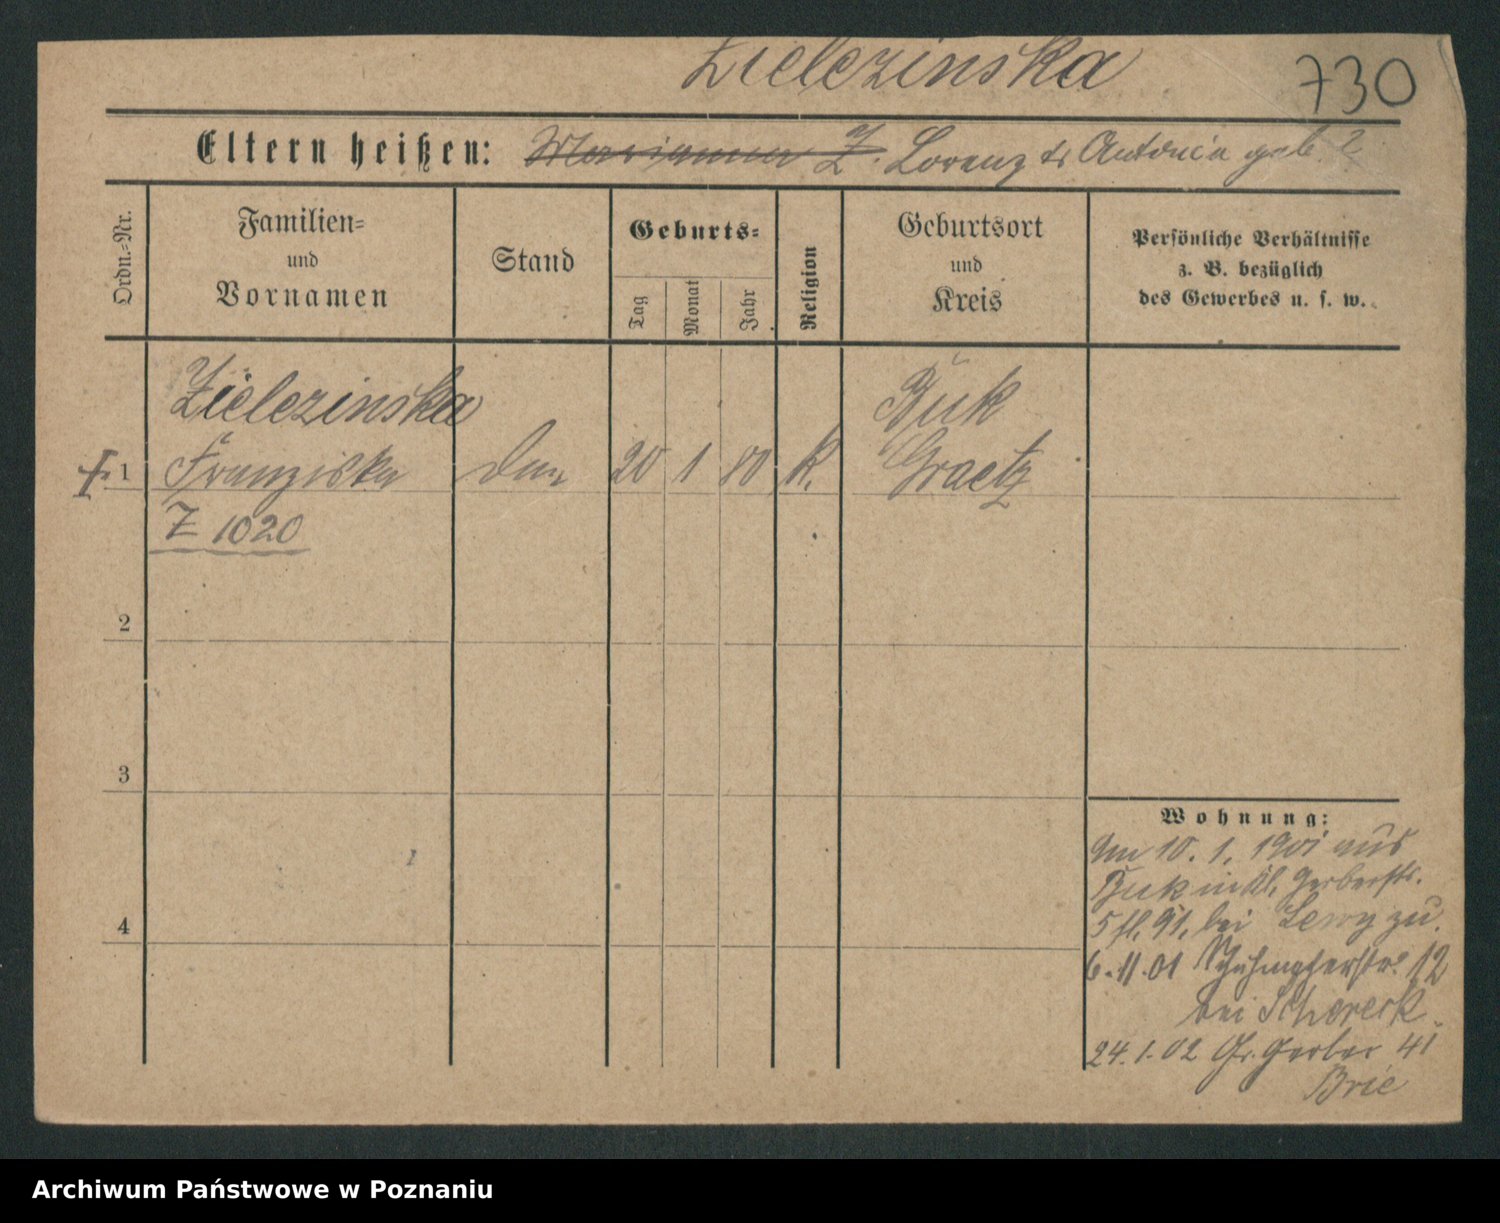 Zielezinska
730
Eltern heißen: Marianna Z. Lorenz & Antonia geb. ?
Ordn.=Nr.
Familien=
und
Vornamen
Stand
Geburts=
Tag
Monat
Jahr
Religion
Geburtsort
und
Kreis
Persönliche Verhältnisse
z. B. bezüglich
des Gewerbes u. s. w.
Zielezinska
Buk
1 Franziska 20 1 80 k. Graetz
Z 1020
2
3
4
Wohnung:
Am 10. 1. 1901 aus
Buk in kl. Gerberstr.
5 fl. 91, bei Lewy zu.
6.11.01 Schuhmacherstr. 12
bei Schereck
24.1.02 Gr. Gerber 41
Brie
Archiwum Państwowe w Poznaniu